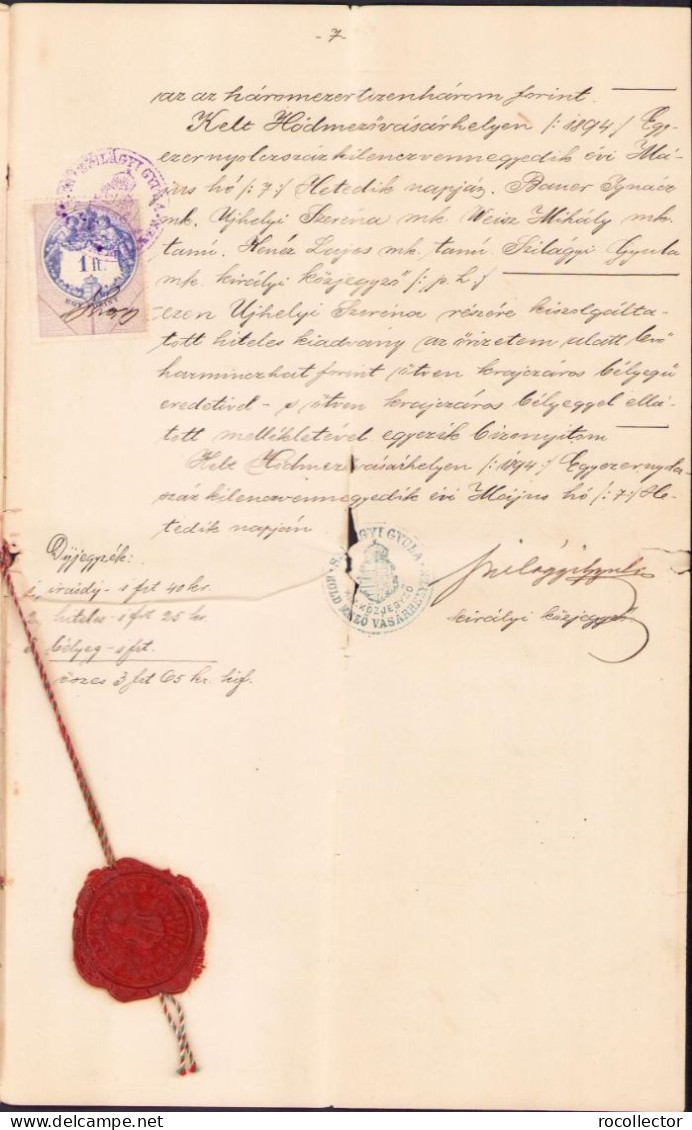 - 7 -
az az háromezertizenhárom forint.
Kelt Hódmezővásárhelyen /: 1894 :/ Egy-
ezernyolczszázkilenczvennegyedik évi Má-
jus hó /: 7 :/ Hetedik napján. Bauer Ignácz
mk. Ujhelyi Szeréna mk. Weisz Mihály mk.
tanú. Lajos mk. tanú. Szilágyi Gyula
mk. királyi közjegyző /: p. h. :/
ezen Ujhelyi Szeréna részére kiszolgálta-
tott hiteles kiadvány az őrizetem alatt levő
harminczhat forint ötven krajczáros bélyegű
eredetivel - s ötven krajczáros bélyeggel ellá-
tott mellékletével egyezik bizonyitom
Kelt Hódmezővásárhelyen /: 1894 :/ Egyezernyolcz-
százkilenczvennegyedik évi Május hó /: 7 :/ He-
tedik napján
SZILÁGYI GYULA
1 ft.
EGY FORINT
Díjjegyzék:
1, irásdíj - 1 frt 40 kr.
2, hiteles - 1 frt 25 kr.
3, bélyeg - 1 frt.
összes 3 frt 65 kr.
SZILÁGYI GYULA
KÖZJEGYZŐ
HÓDMEZŐVÁSÁRHELYEN
Szilágyi Gyula
királyi közjegyző
www.delcampe.net
rocollector